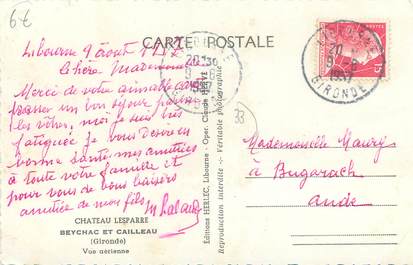 6€
CARTE POSTALE
Libourne 9 août 1957
chère Mademoiselle
Merci de votre aimable carte
passer un bon séjour parmi
les vôtres, moi je suis très
fatiguée je vous désire en
bonne santé, mes amitiés
à toute votre famille et
pour vous de bons baisers
amitiés de mon fils
CHATEAU LESPARRE
BEYCHAC ET CAILLEAU
(Gironde)
Vue aérienne
Editions HERLEC, Libourne - Oper. Claude HERVÉ
Reproduction interdite - Véritable photographie
33
LIBOURNE
9-8
1957
GIRONDE
Mademoiselle Maury
à Bugarach
Aude